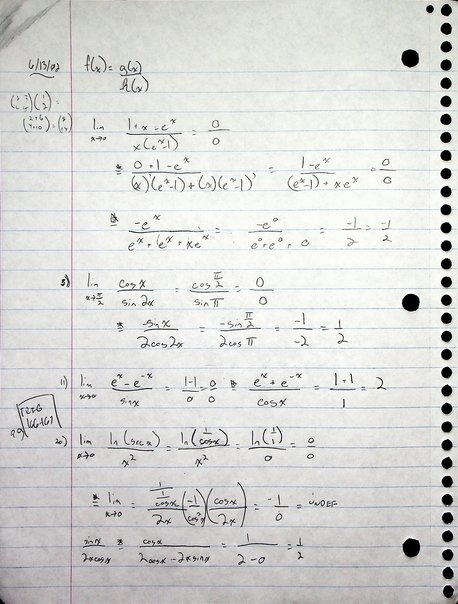 6/13/02
f(x) = g(x)/h(x)
lim x→0 (1+x-e^x)/(x(e^x-1)) = 0/0
(0+1-e^x)/((x)'(e^x-1)+(x)(e^x-1)') = (1-e^x)/((e^x-1)+xe^x) = 0/0
(-e^x)/(e^x+e^x+xe^x) = (-e^0)/(e^0+e^0+0) = -1/2 = -1/2
lim x→π/2 cosx/sin2x = cos π/2 / sin π = 0/0
-sinx/2cos2x = -sin π/2 / 2cos π = -1/-2 = 1/2
11) lim x→0 (e^x-e^-x)/sinx = (1-1)/0 = 0/0 (e^x+e^-x)/cosx = (1+1)/1 = 2
20) lim x→0 ln(secx)/x^2 = ln(1/cosx)/x^2 = ln(1/1)/0 = 0/0
lim x→0 = (1/(1/cosx))/2x (-1/cos^2x)(cosx/2x) = -1/0 = UNDEF
sinx/2xcosx cosx/(2cosx-2xsinx) = 1/(2-0) = 1/2